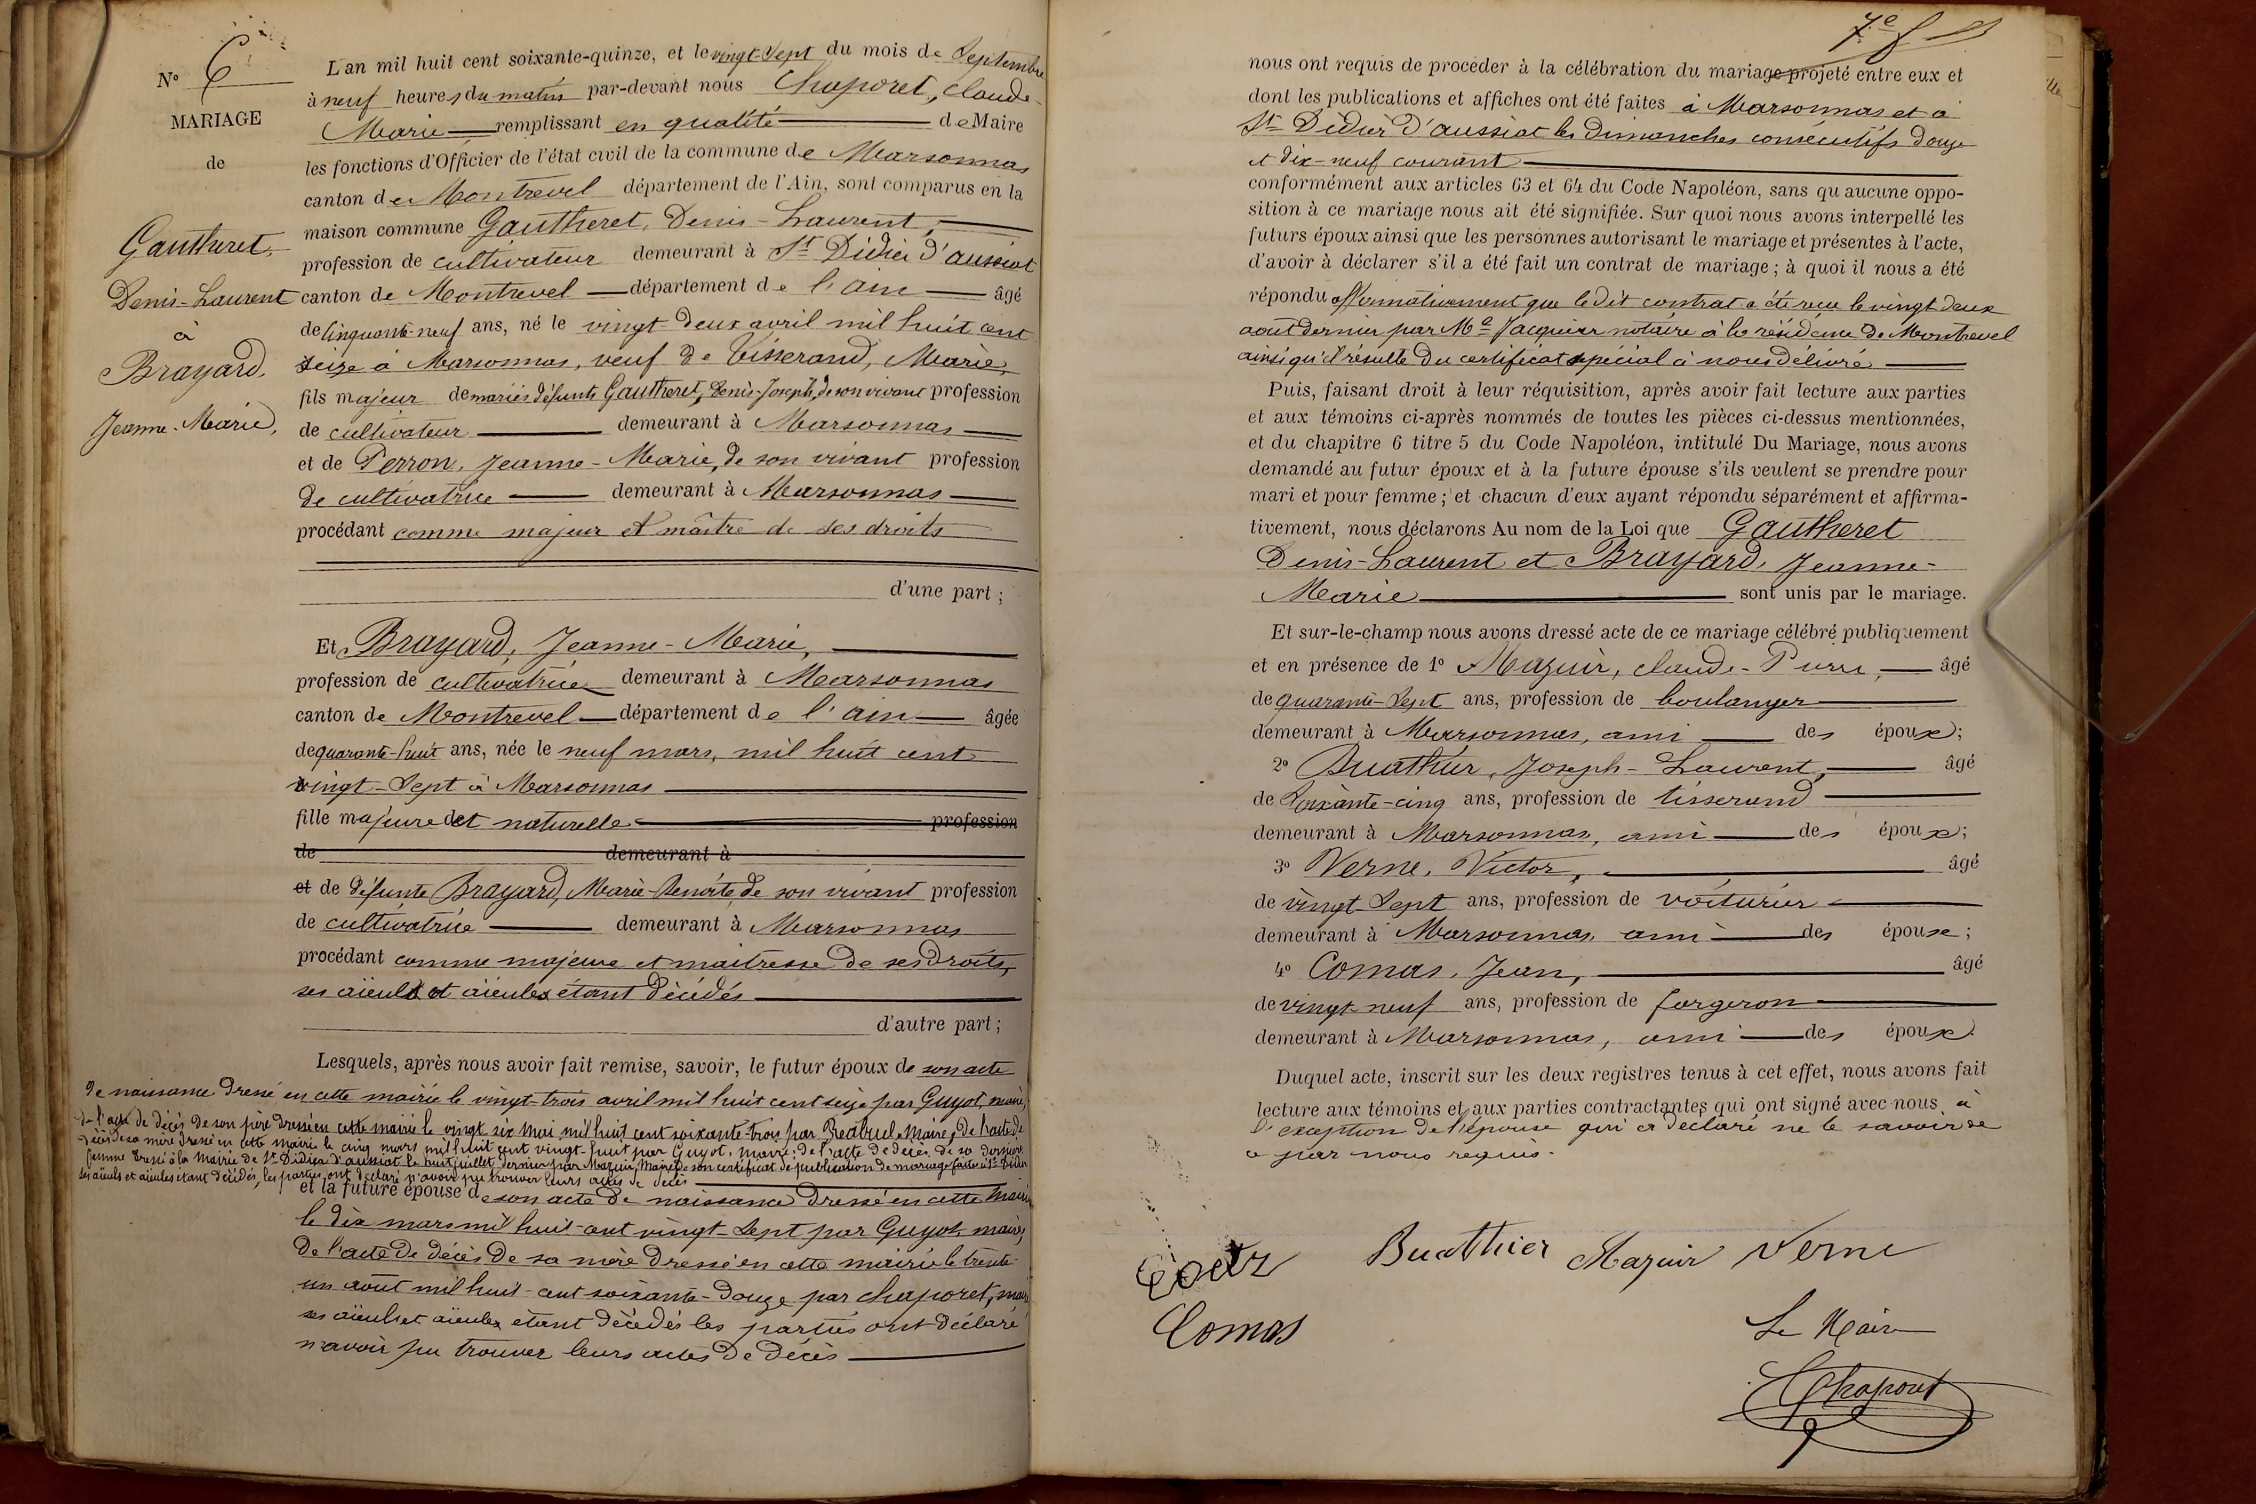 N° 6
MARIAGE
de
Gautheret,
Denis-Laurent
à
Brayard,
Jeanne-Marie,
L'an mil huit cent soixante-quinze, et le vingt-sept du mois de Septembre
à neuf heures du matin par-devant nous Chaporet, Claude-
Marie remplissant en qualité de Maire
les fonctions d'Officier de l'état civil de la commune de Marsonnas
canton de Montrevel département de l'Ain, sont comparus en la
maison commune Gautheret, Denis-Laurent,
profession de cultivateur demeurant à St Didier d'aussiat
canton de Montrevel département de l'ain âgé
de cinquante-neuf ans, né le vingt-deux avril mil huit cent
seize à Marsonnas, veuf de Tisserand, Marie,
fils majeur de mariés défunts Gautheret, Denis-Joseph, de son vivant profession
de cultivateur demeurant à Marsonnas
et de Perron, Jeanne-Marie, de son vivant profession
de cultivatrice demeurant à Marsonnas
procédant comme majeur et maître de ses droits
d'une part ;
Et Brayard, Jeanne-Marie,
profession de cultivatrice demeurant à Marsonnas
canton de Montrevel département de l'ain âgée
de quarante-huit ans, née le neuf mars, mil huit cent
vingt-sept à Marsonnas
fille majeure et naturelle profession
de demeurant à
et de défunte Brayard, Marie-Benoîte, de son vivant profession
de cultivatrice demeurant à Marsonnas
procédant comme majeure et maitresse de ses droits,
ses aïeuls et aïeules étant décédés
d'autre part ;
Lesquels, après nous avoir fait remise, savoir, le futur époux de son acte
de naissance dressé en cette mairie le vingt-trois avril mil huit cent seize par Guyot, maire,
de l'acte de décès de son père dressé en cette mairie le vingt six mai mil huit cent soixante-trois par Maire, de l'acte de
décès de sa mère dressé en cette mairie le cinq mars mil huit cent vingt-huit par Guyot, maire; de l'acte de décès de sa dernière
femme dressé à la Mairie de St Didier d'aussiat le huit juillet dernier par Mazuir, Maire, de son certificat de publication de mariage faite à St Didier
ses aïeuls et aïeules étant décédés, les parties ont déclaré n'avoir pu trouver leurs actes de décès
et la future épouse de son acte de naissance dressé en cette mairie
le dix mars mil huit-cent vingt-sept par Guyot, maire,
de l'acte de décès de sa mère dressé en cette mairie le trente-
un août mil huit-cent soixante-douze par Chaporet, maire
ses aïeuls et aïeules étant décédés les parties ont déclaré
n'avoir pu trouver leurs actes de décès
7e
nous ont requis de procéder à la célébration du mariage projeté entre eux et
dont les publications et affiches ont été faites à Marsonnas et à
St Didier d'aussiat les dimanches consécutifs douze
et dix-neuf courant
conformément aux articles 63 et 64 du Code Napoléon, sans qu'aucune oppo-
sition à ce mariage nous ait été signifiée. Sur quoi nous avons interpellé les
futurs époux ainsi que les personnes autorisant le mariage et présentes à l'acte,
d'avoir à déclarer s'il a été fait un contrat de mariage ; à quoi il nous a été
répondu affirmativement que ledit contrat a été reçu le vingt deux
aout dernier par Me Jacquier notaire à la résidence de Montrevel
ainsi qu'il résulte du certificat spécial à nous délivré
Puis, faisant droit à leur réquisition, après avoir fait lecture aux parties
et aux témoins ci-après nommés de toutes les pièces ci-dessus mentionnées,
et du chapitre 6 titre 5 du Code Napoléon, intitulé Du Mariage, nous avons
demandé au futur époux et à la future épouse s'ils veulent se prendre pour
mari et pour femme ; et chacun d'eux ayant répondu séparément et affirma-
tivement, nous déclarons Au nom de la Loi que Gautheret
Denis-Laurent et Brayard, Jeanne-
Marie sont unis par le mariage.
Et sur-le-champ nous avons dressé acte de ce mariage célébré publiquement
et en présence de 1° Mazuir, Claude-Pierre, âgé
de quarante-sept ans, profession de boulanger
demeurant à Marsonnas, ami des époux ;
2° Buathier, Joseph-Laurent, âgé
de soixante-cinq ans, profession de tisserand
demeurant à Marsonnas, ami des époux ;
3° Verne, Victor, âgé
de vingt-sept ans, profession de voiturier
demeurant à Marsonnas, ami des époux ;
4° Comas, Jean, âgé
de vingt-neuf ans, profession de forgeron
demeurant à Marsonnas, ami des époux
Duquel acte, inscrit sur les deux registres tenus à cet effet, nous avons fait
lecture aux témoins et aux parties contractantes qui ont signé avec nous, à
l'exception de l'épouse qui a déclaré ne le savoir de
ce par nous requis.
Buathier Mazuir Verne
Comas
Le Maire
Chaporet